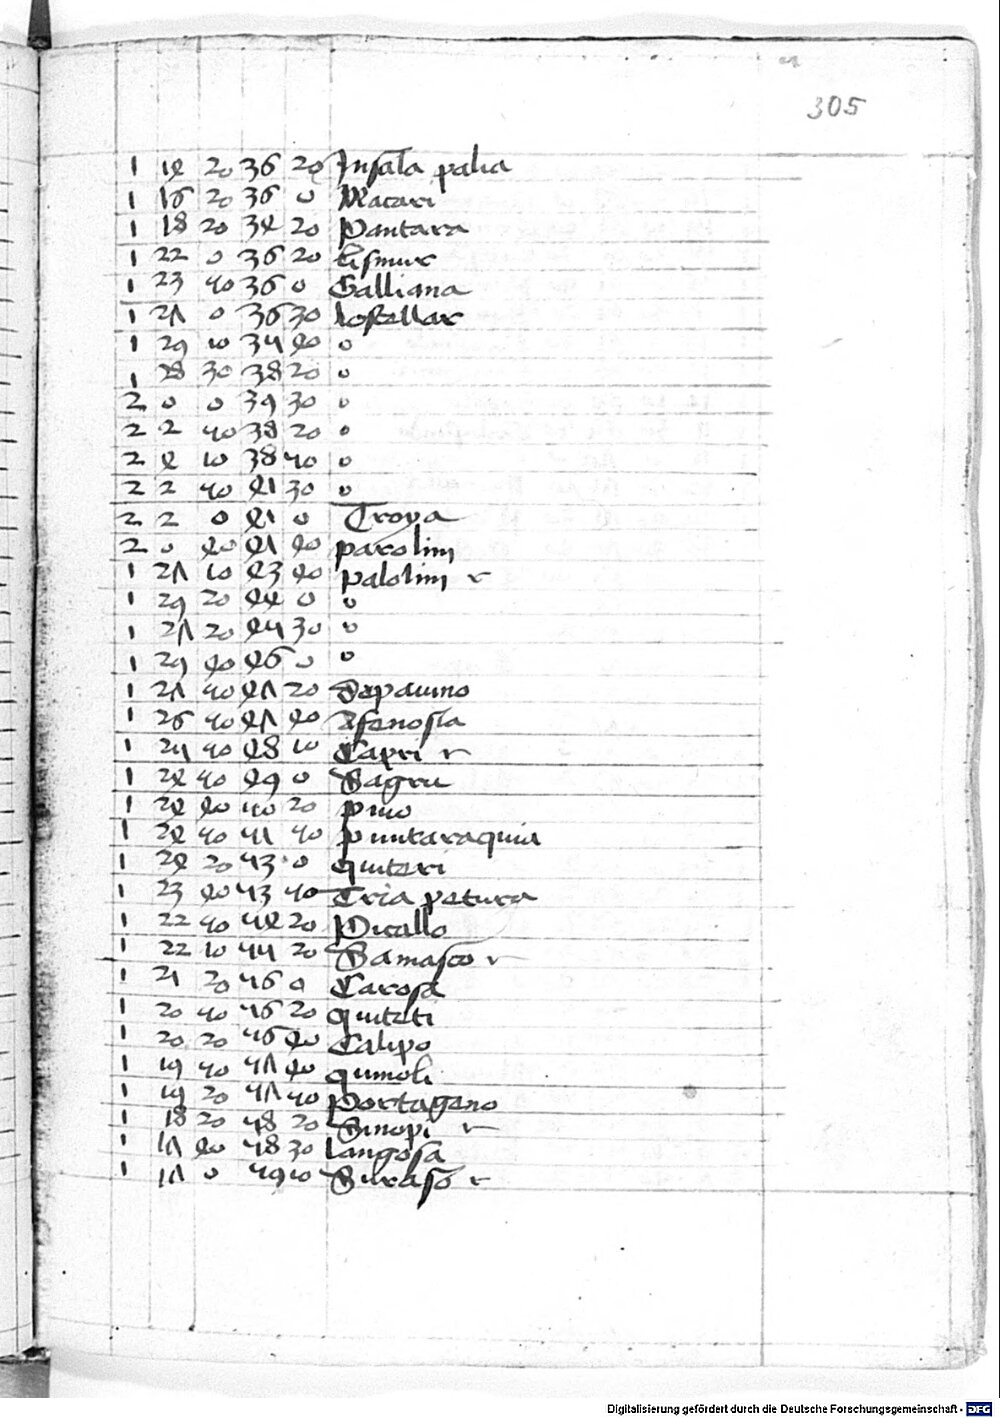 305
1 14 20 36 20 Insula palia
1 16 20 36 0 Macari
1 18 20 34 20 Pantara
1 22 0 36 20 Lismur
1 23 50 36 0 Galliana
1 27 0 36 30 Lostellar
1 29 10 35 40 0
1 28 30 38 20 0
2 0 0 39 30 0
2 2 50 38 20 0
2 4 10 38 50 0
2 2 50 41 30 0
2 2 0 41 0 Troya
2 0 40 41 40 parolini
1 27 10 43 40 palolini r
1 29 20 44 0 0
1 27 20 45 30 0
1 29 40 46 0 0
1 27 50 47 20 Sapauino
1 26 50 47 40 Asenosia
1 25 50 48 10 Capri r
1 24 50 49 0 Sagru
1 24 40 50 20 pino
1 24 50 51 50 puntaraquia
1 24 20 53 0 quiteri
1 23 40 53 50 Tria petura
1 22 50 54 20 Picallo
1 22 10 55 20 Samasco r
1 21 20 56 0 Carosa
1 20 50 56 20 quiteti
1 20 20 56 40 Calipo
1 19 50 57 40 qumoli
1 19 20 57 50 portageno
1 18 20 58 20 Sinopi r
1 17 40 58 30 Langosa
1 17 0 59 10 Suraso r
Digitalisierung gefördert durch die Deutsche Forschungsgemeinschaft - DFG